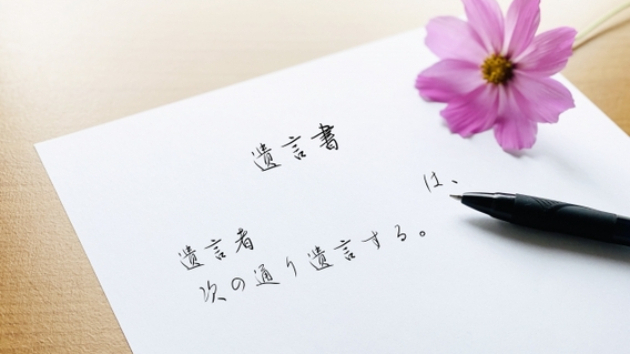 遺言書
遺言者 は、
次の通り遺言する。